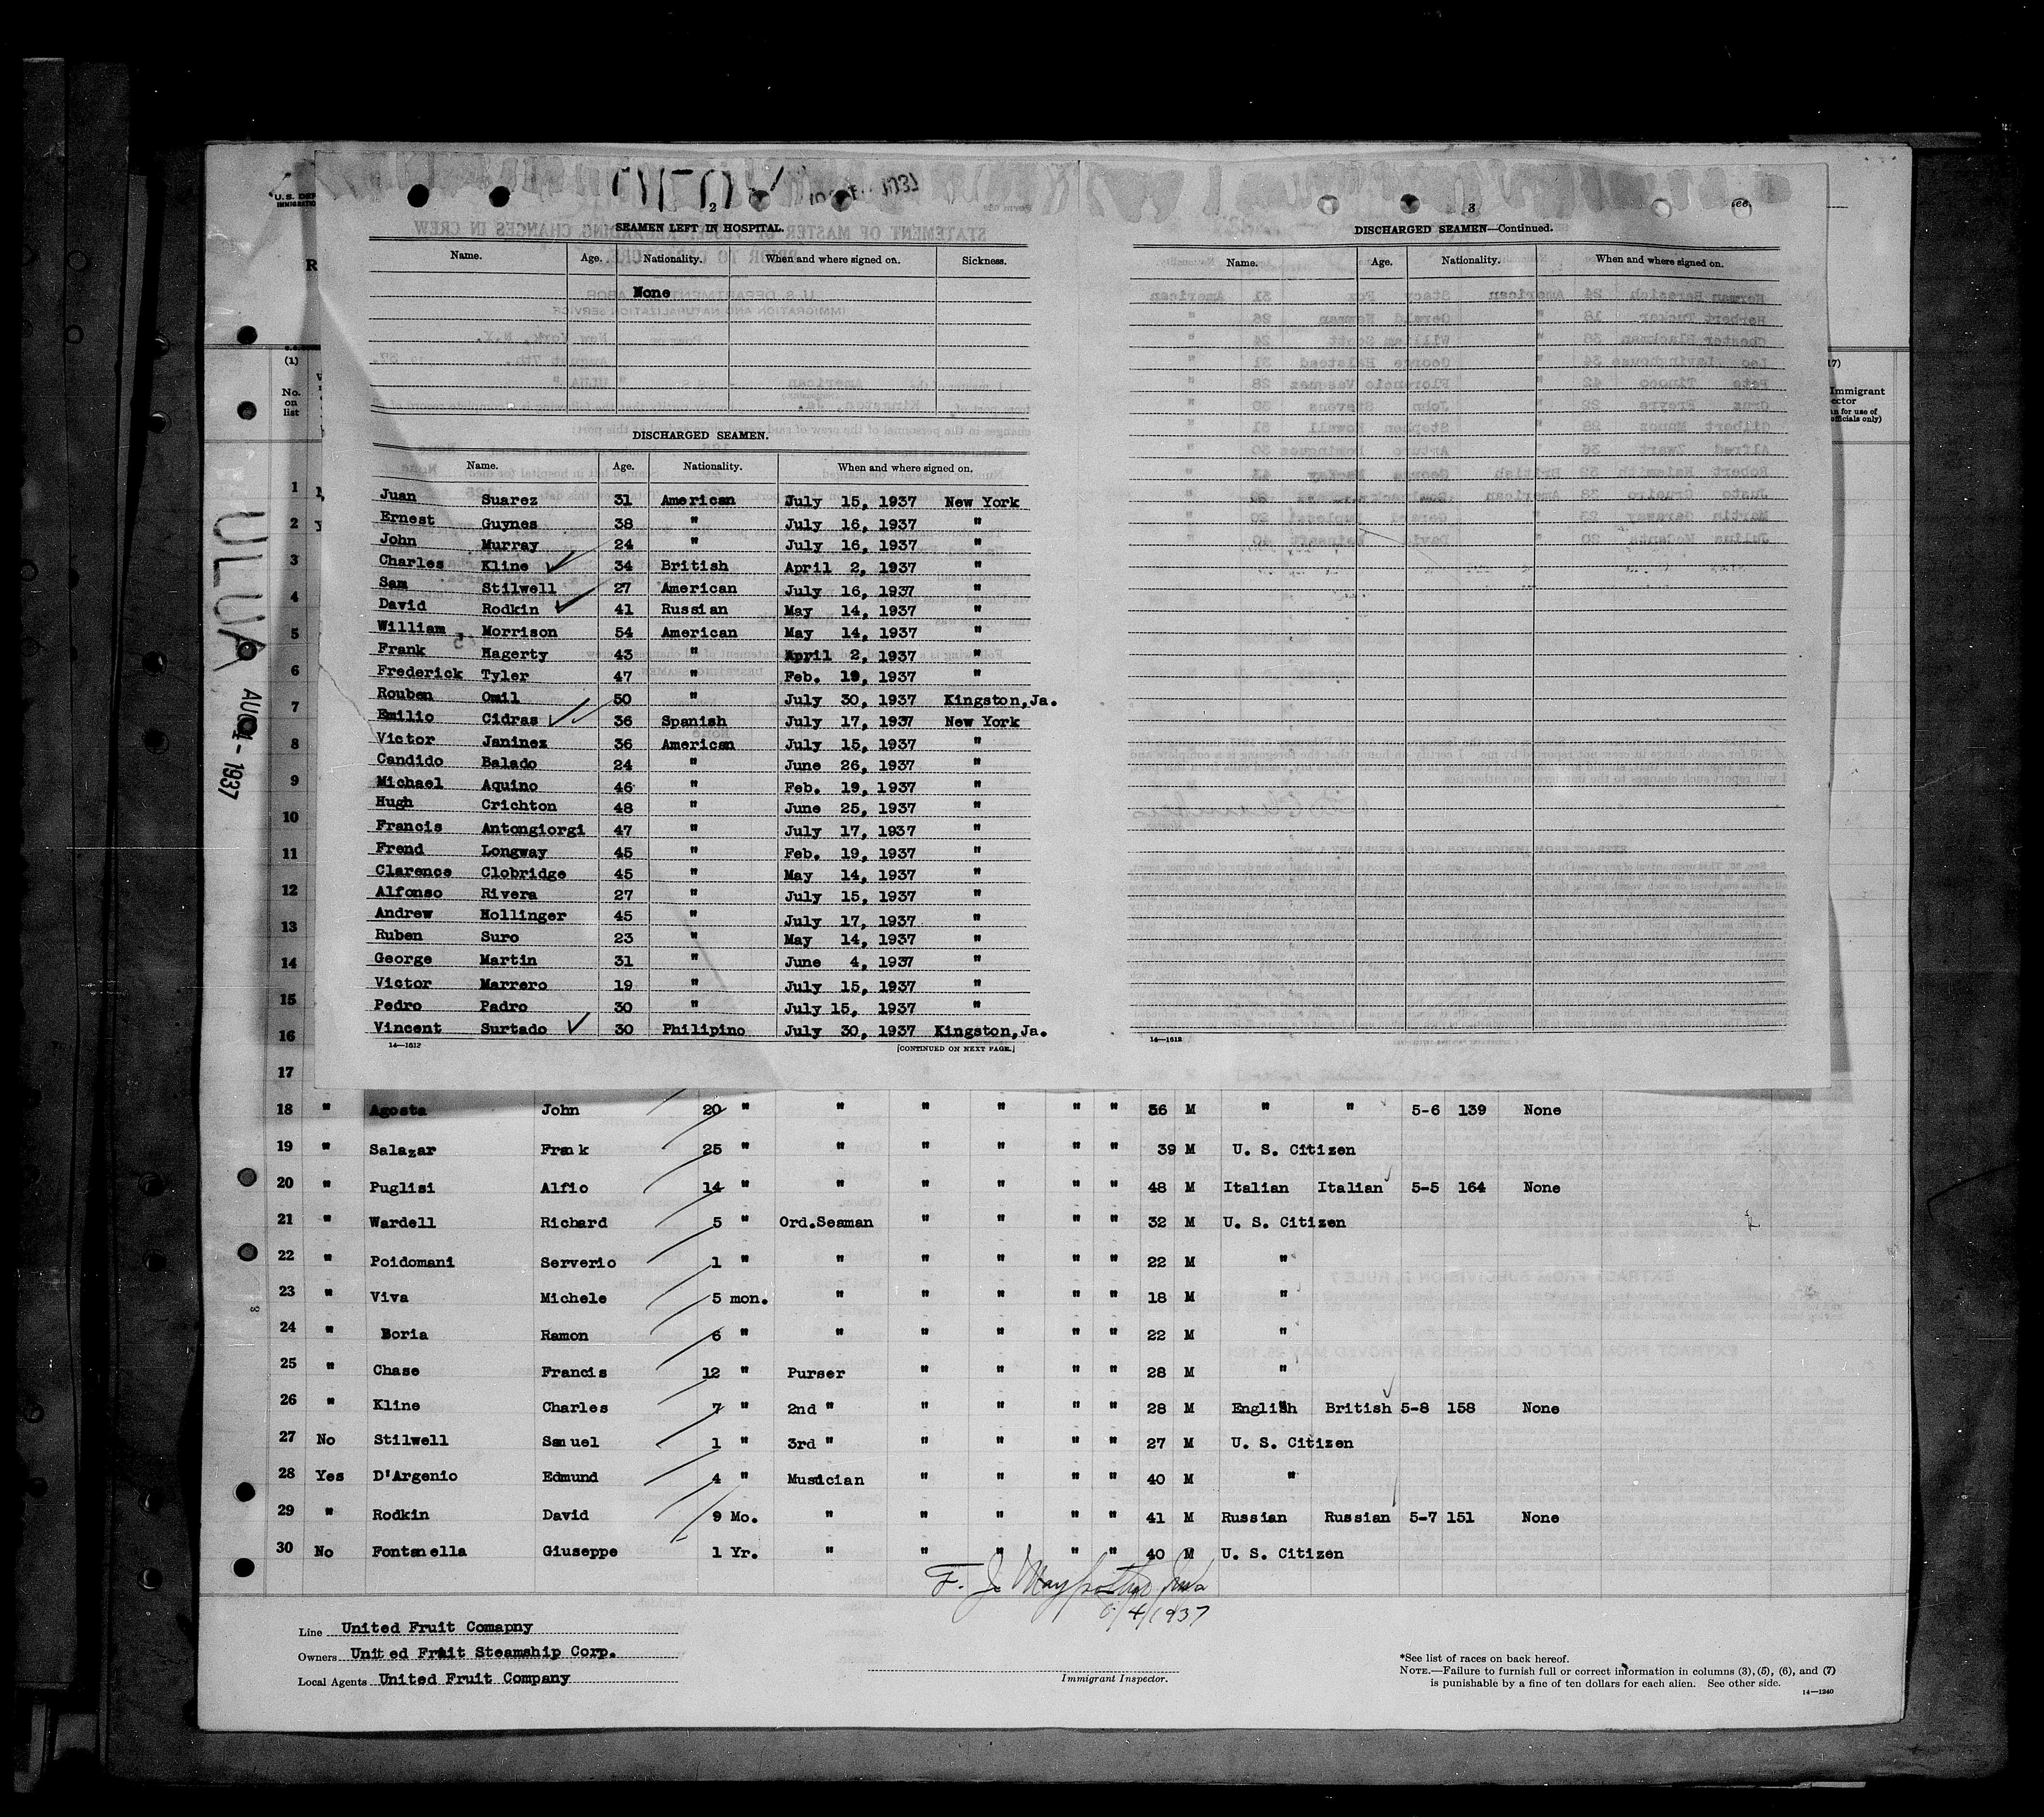 2
SEAMEN LEFT IN HOSPITAL.
Name. Age. Nationality. When and where signed on. Sickness.
None
DISCHARGED SEAMEN.
Name. Age. Nationality. When and where signed on.
Juan Suarez 31 American July 15, 1937 New York
Ernest Guynes 38 " July 16, 1937 "
John Murray 24 " July 16, 1937 "
Charles Kline 34 British April 2, 1937 "
Sam Stilwell 27 American July 16, 1937 "
David Rodkin 41 Russian May 14, 1937 "
William Morrison 54 American May 14, 1937 "
Frank Hagerty 43 " April 2, 1937 "
Frederick Tyler 47 " Feb. 19, 1937 "
Rouben Omil 50 " July 30, 1937 Kingston,Ja.
Emilio Cidras 36 Spanish July 17, 1937 New York
Victor Janinez 36 American July 15, 1937 "
Candido Balado 24 " June 26, 1937 "
Michael Aquino 46 " Feb. 19, 1937 "
Hugh Crichton 48 " June 25, 1937 "
Francis Antongiorgi 47 " July 17, 1937 "
Frend Longway 45 " Feb. 19, 1937 "
Clarence Clobridge 45 " May 14, 1937 "
Alfonso Rivera 27 " July 15, 1937 "
Andrew Hollinger 45 " July 17, 1937 "
Ruben Suro 23 " May 14, 1937 "
George Martin 31 " June 4, 1937 "
Victor Marrero 19 " July 15, 1937 "
Pedro Padro 30 " July 15, 1937 "
Vincent Surtado 30 Philipino July 30, 1937 Kingston,Ja.
14—1512 [CONTINUED ON NEXT PAGE.]
3
DISCHARGED SEAMEN—Continued.
Name. Age. Nationality. When and where signed on.
14—1512
ULUA
AUG 4 - 1937
(1)
No. on list
1
2
3
4
5
6
7
8
9
10
11
12
13
14
15
16
17
18 " Agosta John 20 " " " " " " 36 M " " 5-6 139 None
19 " Salazar Frank 25 " " " " " " 39 M U. S. Citizen
20 " Puglisi Alfio 14 " " " " " " 48 M Italian Italian 5-5 164 None
21 " Wardell Richard 5 " Ord.Seaman " " " " 32 M U. S. Citizen
22 " Poidomani Serverio 1 " " " " " " 22 M "
23 " Viva Michele 5 mon. " " " " " 18 M "
24 " Boria Ramon 6 " " " " " " 22 M "
25 " Chase Francis 12 " Purser " " " " 28 M "
26 " Kline Charles 7 " 2nd " " " " " 28 M English British 5-8 158 None
27 No Stilwell Samuel 1 " 3rd " " " " " 27 M U. S. Citizen
28 Yes D'Argenio Edmund 4 " Musician " " " " 40 M "
29 " Rodkin David 9 Mo. " " " " " 41 M Russian Russian 5-7 151 None
30 No Fontanella Giuseppe 1 Yr. " " " " " 40 M U. S. Citizen
8/4/1937
Line United Fruit Comapny
Owners United Fruit Steamship Corp.
Local Agents United Fruit Company
Immigrant Inspector.
*See list of races on back hereof.
NOTE.—Failure to furnish full or correct information in columns (3), (5), (6), and (7)
is punishable by a fine of ten dollars for each alien. See other side.
14—1240